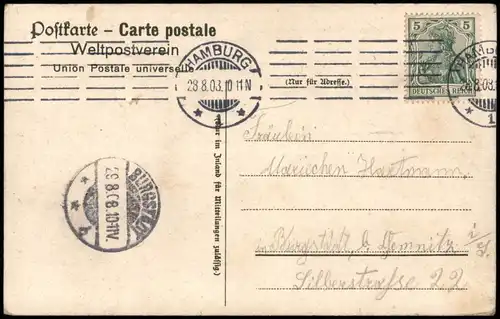 Postkarte – Carte postale
Weltpostverein
Union Postale universelle
HAMBURG
28.8.08.10-11N
* 1 *
5 5
DEUTSCHES REICH
(Nur für Adresse.)
Nur im Inland für Mitteilungen zulässig.
Fräulein
Mariechen Hartmann,
in Burgstädt b. Chemnitz i/S.
Silberstraße 22
BURGSTÄDT